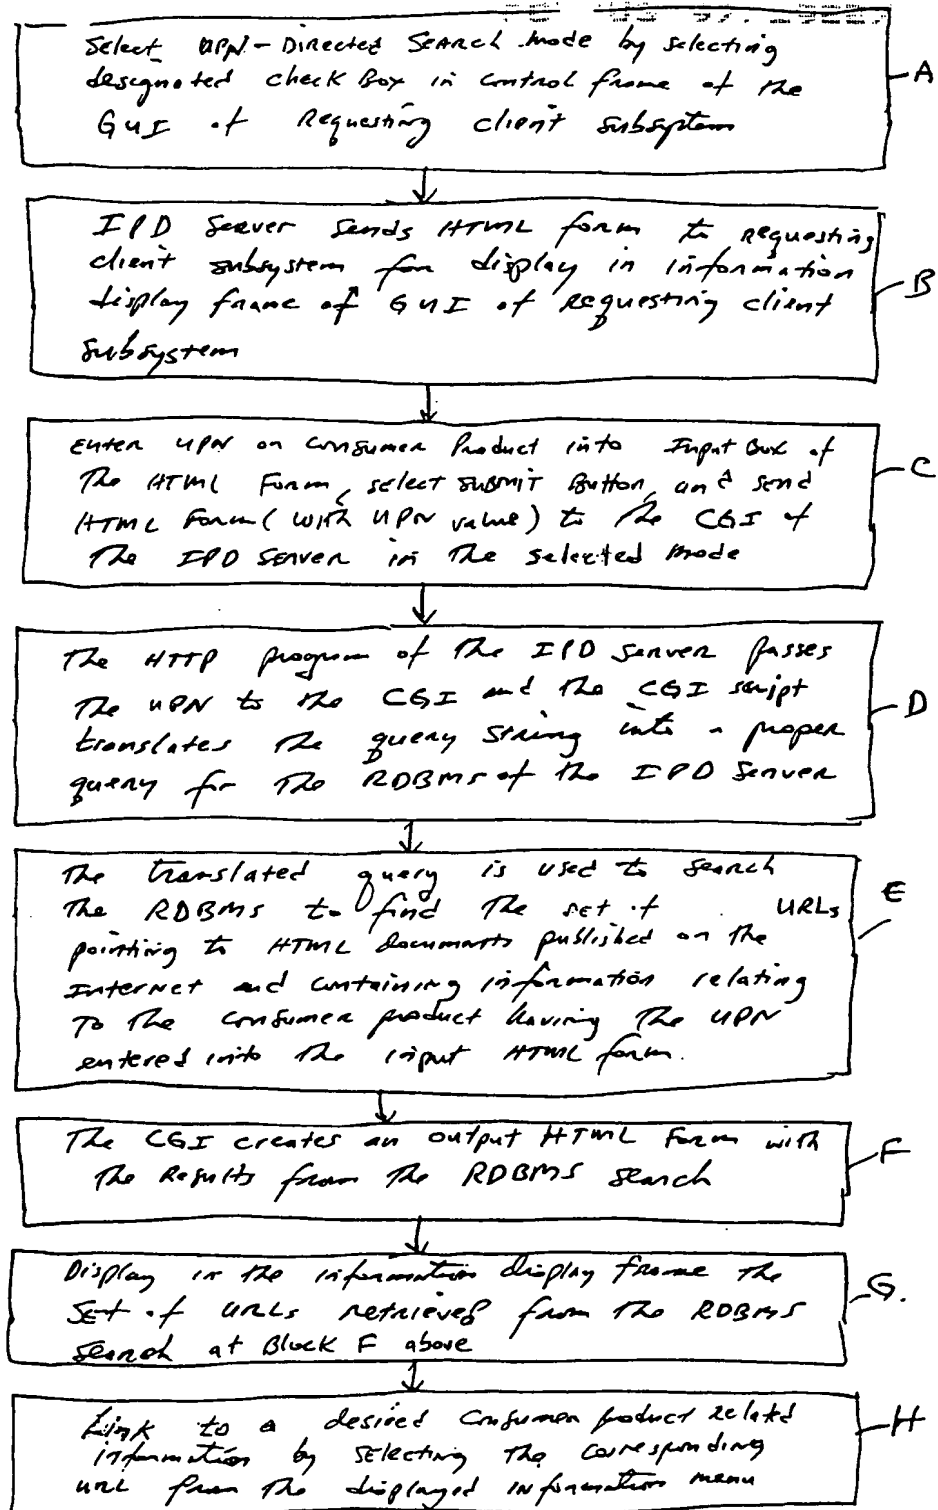 Select UPN-Directed Search mode by selecting
designated check Box in control frame of the
GUI of Requesting client subsystem
A
IPD Server sends HTML form to requesting
client subsystem for display in information
display frame of GUI of requesting client
subsystem
B
Enter UPN on Consumer Product into Input Box of
The HTML Form, select SUBMIT Button, and send
HTML Form (with UPN value) to the CGI of
The IPD Server in the selected mode
C
The HTTP program of the IPD Server passes
The UPN to the CGI and the CGI script
translates the query string into a proper
query for the RDBMS of the IPD Server
D
The translated query is used to search
The RDBMS to find the set of URLs
pointing to HTML documents published on the
Internet and containing information relating
To the consumer product having the UPN
entered into the input HTML form.
E
The CGI creates an output HTML Form with
The Results from the RDBMS search
F
Display in the information display frame the
Set of URLs retrieved from the RDBMS
Search at Block F above
G.
Link to a desired Consumer product related
information by selecting the corresponding
URL from the displayed information menu
H